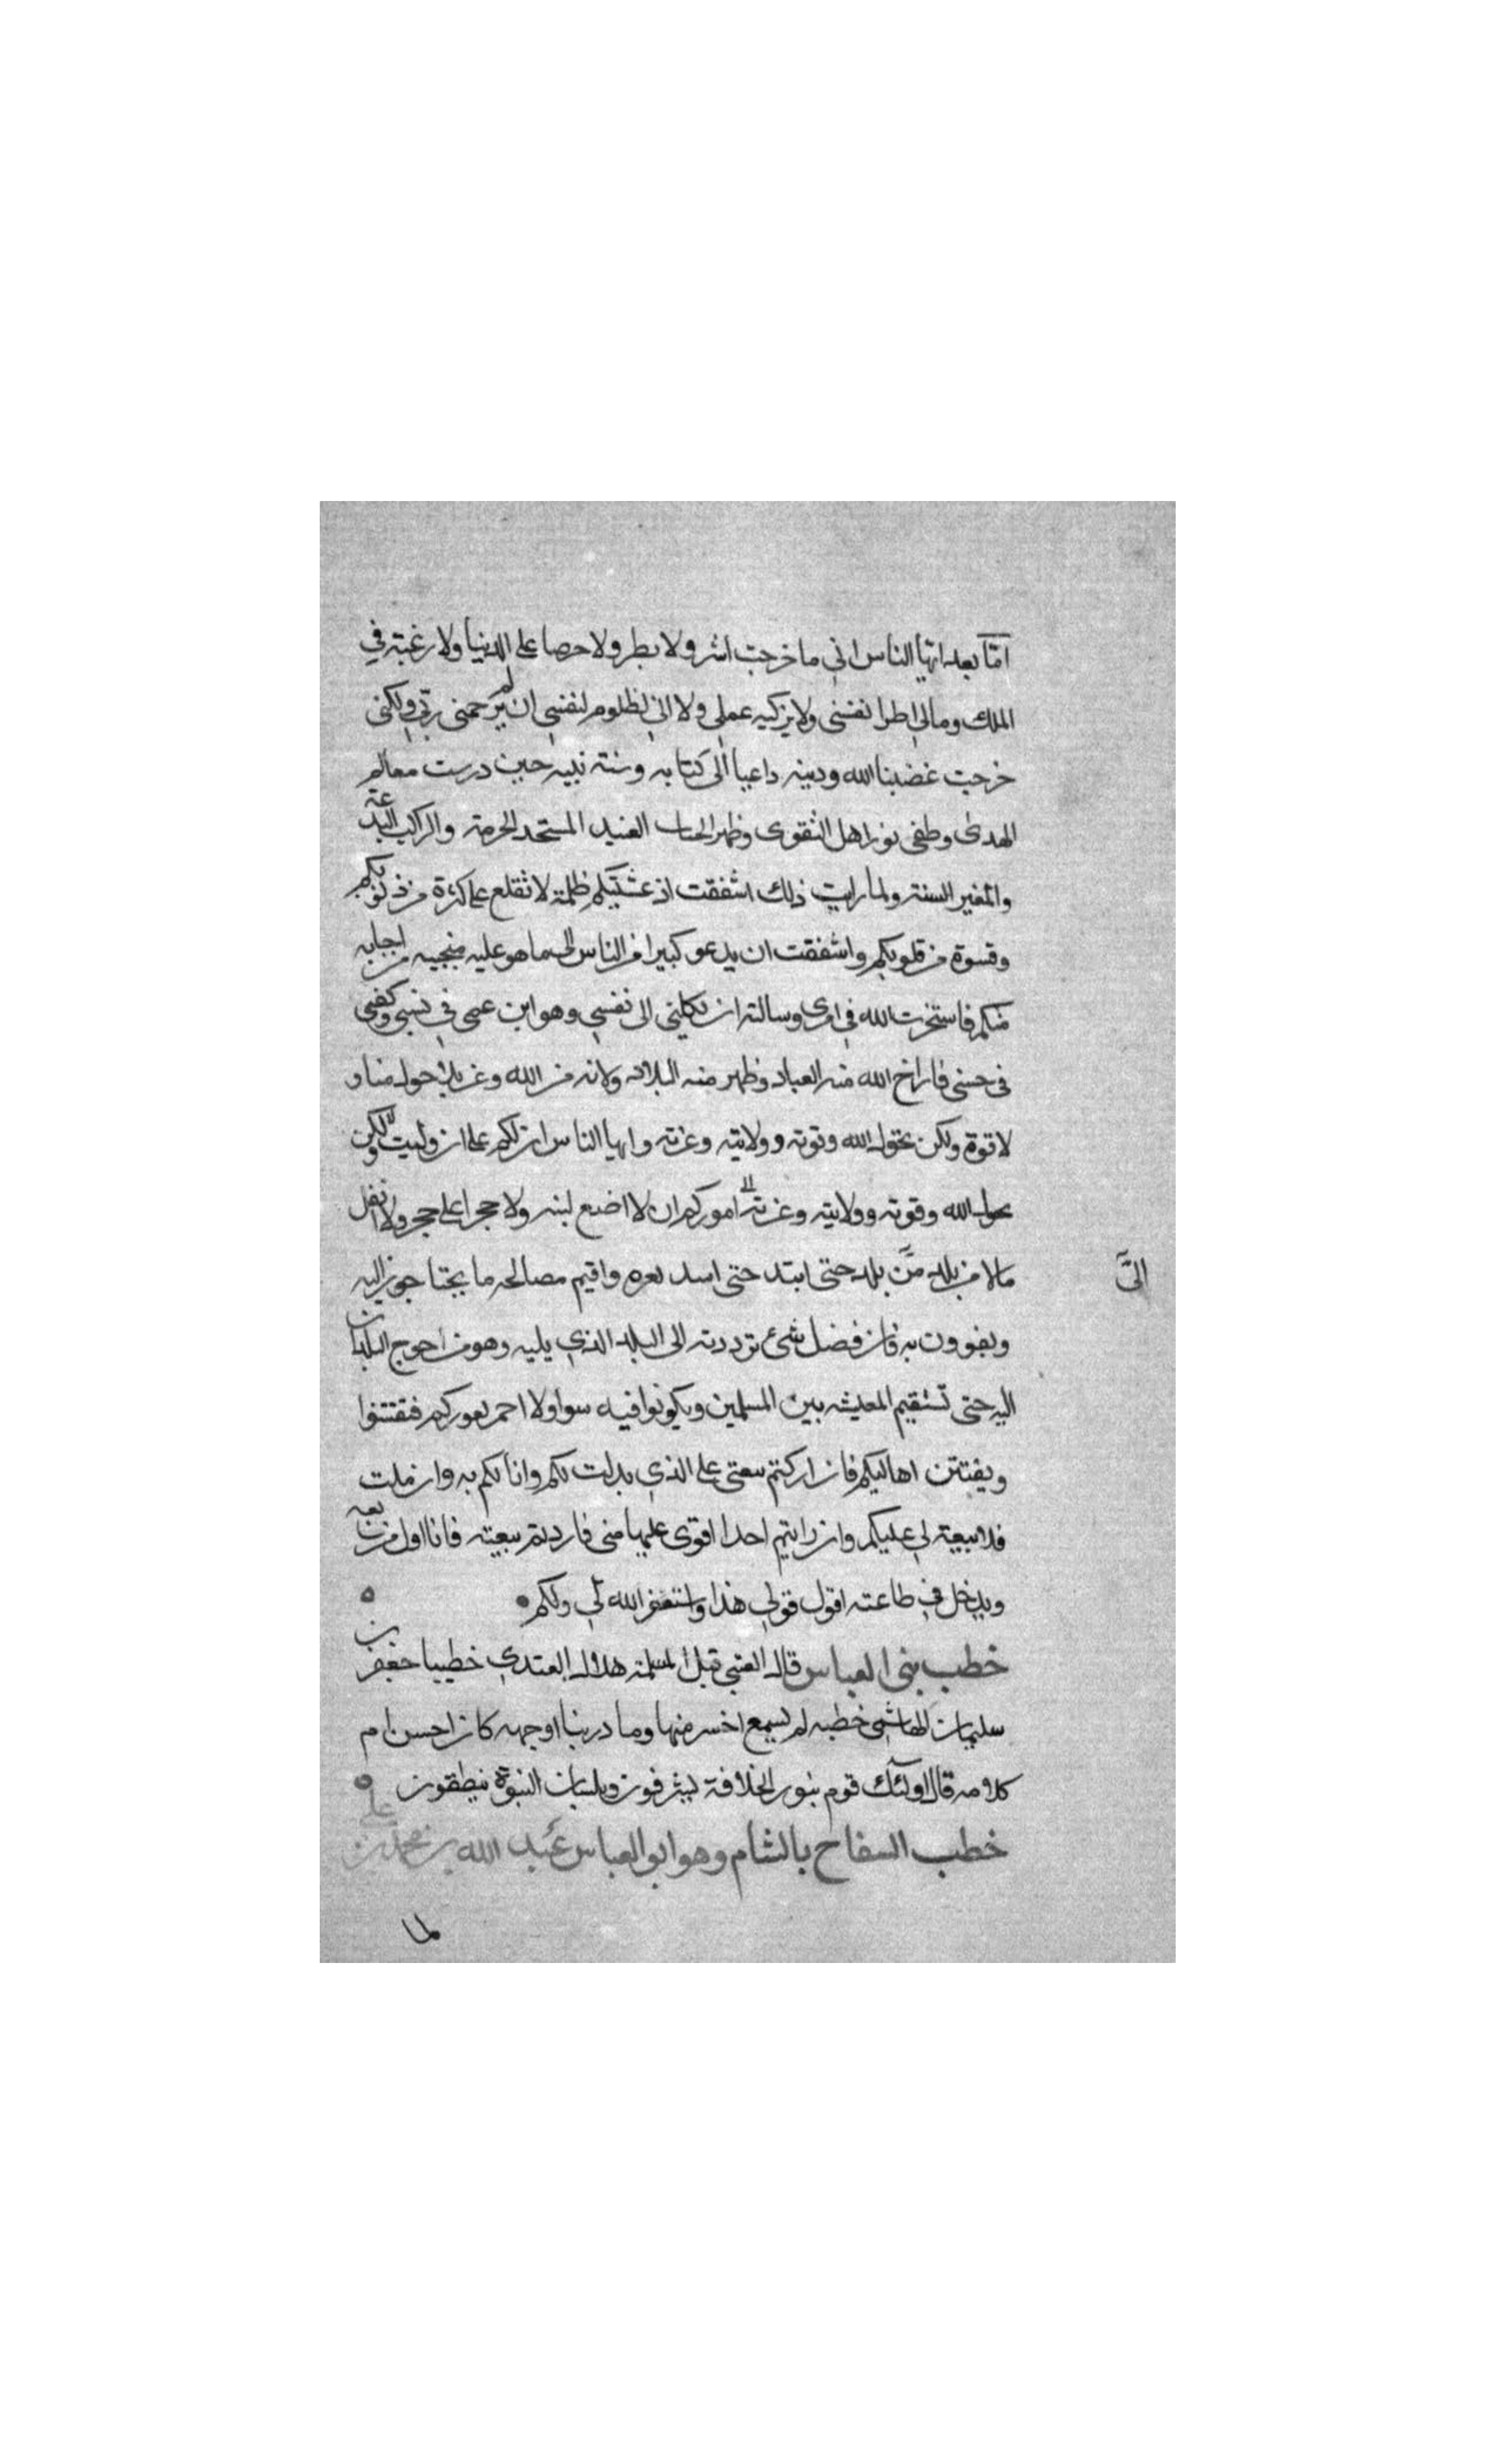 امّا بعد ايها الناس انى ما خرجت اشر ولا بطر ولا حرصا على الدنيا ولا رغبة في
الملك وما لي اطرا نفسى ولا يزكيه عملى ولا انى لظلوم لنفسي ان لم يرحمنى ربّي ولكنى
خرجت غضبنا الله ودينه داعيا الى كتابه وسنة نبيه حين درست معالم
الهدى وطفى نور اهل التقوى وظهر العنيد المستحد الحرمة والراكب البدعة
والمغير السنة ولما رايت ذلك اشفقت اذ غشيتكم ظلمة لا تقلع على كثرة من ذنوبكم
وقسوة من قلوبكم واشفقت ان يدعو كبيرا من الناس الى ما هو عليه فيجيبه من اجابه
منكم فاستخرت الله في امرى وسالته ان لا يكلنى الى نفسي وهو ابن عمى في نسبى وكفيى
في حسبى فاراح الله منه العباد وظهر منه البلاد ولاية من الله وعز بلا حول منا و
لا قوة ولكن بحول الله وقوته وولايته وعزته وايها الناس ان لكم على ان وليت ولكن
بحول الله وقوته وولايته وعزته اموركم ان لا اضع لبنه ولا حجرا على حجر ولا انقل
مالا من بلد من بلد حتى ابتد حتى اسد ثغره واقيم مصالحه ما يحتاجون اليه
الىّ
ويقوون به فان فضل شئ ترددته الى البلد الذي يليه وهو من احوج البلدان
اليه حتى تستقيم المعيشه بين المسلمين ويكونوا فيه سوا ولا احمر بعوركم فتفتتنوا
ويفتتن اهاليكم فان اركتم بيعتى على الذي بدلت لكم وانا لكم به وان ملت
فلا بيعة لي عليكم وان رايتم احدا اقوى عليها منى فاردتم بيعته فانا اول من بايعه
ويدخل في طاعته اقول قولي هذا واستغفر الله لي ولكم
خطب بنى العباس قال العتبى قيل لمسلمة هلال العبدي خطيبا جعفر بن
سليمان الهاشمى خطبه لم يسمع احسن منها وما درينا اوجهه كان احسن ام
كلامه قال اولئك قوم بنور الخلافة يشرفون وبلسان النبوة ينطقون
خطب السفاح بالشام وهو ابو العباس عبد الله بن محمد بن على
لما